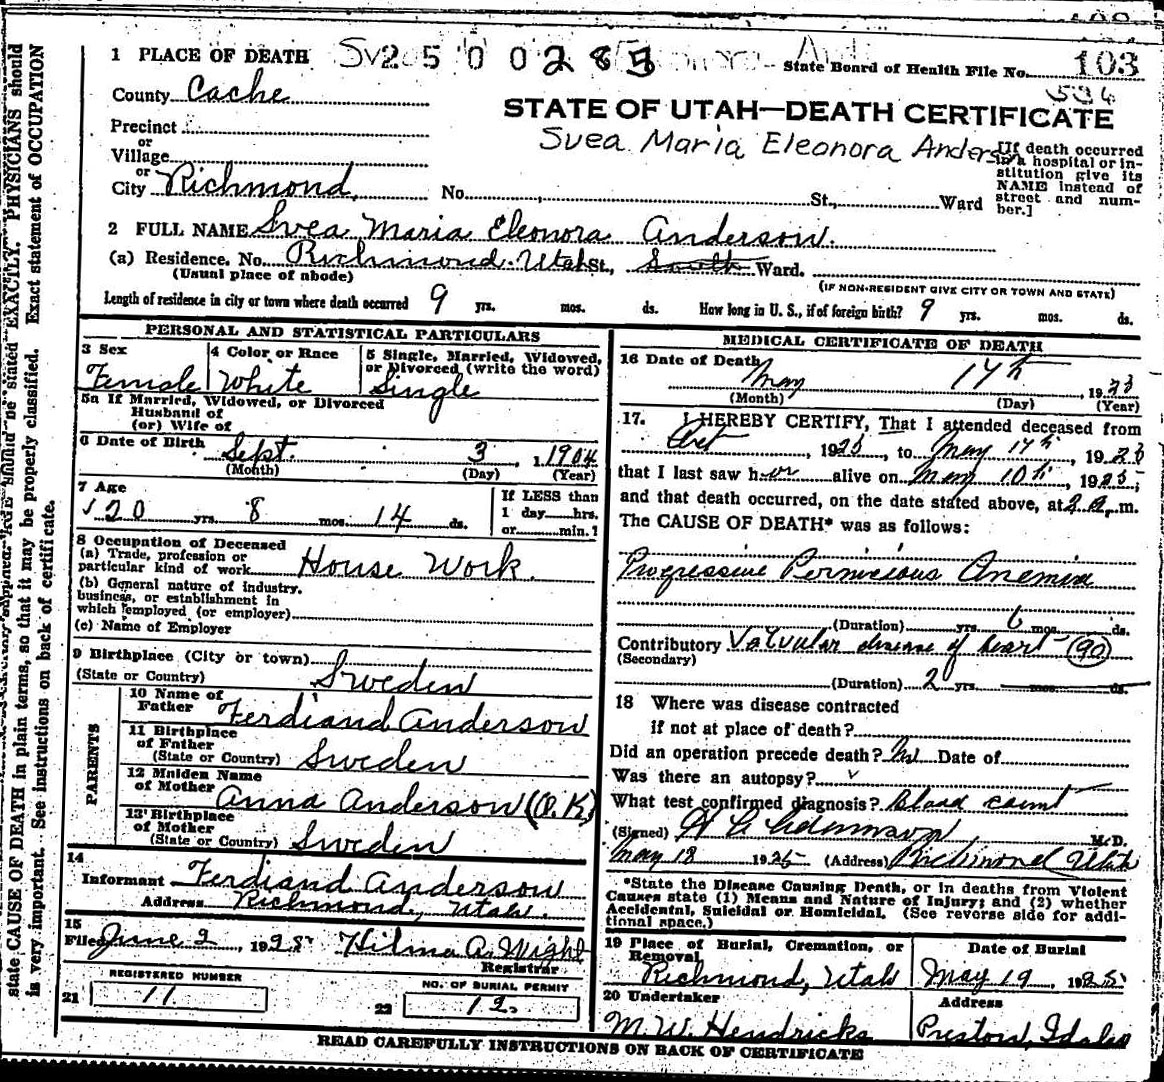 103
1 PLACE OF DEATH Sv2 5 0 0 2 8 5 State Board of Health File No. 103
534
County Cache
STATE OF UTAH—DEATH CERTIFICATE
Svea Maria Eleonora Anderson
Precinct
or
Village
or
City Richmond, No. St., Ward
[If death occurred in a hospital or institution give its NAME instead of street and number.]
2 FULL NAME Svea Maria Eleonora Anderson.
(a) Residence. No. Richmond. Utah St., South Ward.
(Usual place of abode) (IF NON-RESIDENT GIVE CITY OR TOWN AND STATE)
Length of residence in city or town where death occurred 9 yrs. mos. ds. How long in U. S., if of foreign birth? 9 yrs. mos. ds.
PERSONAL AND STATISTICAL PARTICULARS
3 Sex 4 Color or Race 5 Single, Married, Widowed,
or Divorced (write the word)
Female White Single
5a If Married, Widowed, or Divorced
Husband of
(or) Wife of
6 Date of Birth Sept. 3, 1904
(Month) (Day) (Year)
7 Age
20 yrs. 8 mos. 14 ds.
If LESS than
1 day hrs.
or min.?
8 Occupation of Deceased
(a) Trade, profession or
particular kind of work House Work.
(b) General nature of industry,
business, or establishment in
which employed (or employer)
(c) Name of Employer
9 Birthplace (City or town)
(State or Country) Sweden
PARENTS
10 Name of
Father Ferdiand Anderson
11 Birthplace
of Father
(State or Country) Sweden
12 Maiden Name
of Mother Anna Anderson (O.K)
13 Birthplace
of Mother
(State or Country) Sweden
14
Informant Ferdiand Anderson
Address Richmond, Utah.
15
Filed June 2, 1925 Hilma A. Wight
Registrar
REGISTERED NUMBER NO. OF BURIAL PERMIT
21 11 22 12.
MEDICAL CERTIFICATE OF DEATH
16 Date of Death
May 17th, 1925
(Month) (Day) (Year)
17. I HEREBY CERTIFY, That I attended deceased from
Oct, 1923, to May 17th, 1925
that I last saw her alive on May 10th, 1925,
and that death occurred, on the date stated above, at 2 a. m.
The CAUSE OF DEATH* was as follows:
Progressive Pernicious Anemia
(Duration) yrs. 6 mos. ds.
Contributory Valvular disease of heart (90)
(Secondary)
(Duration) 2 yrs. mos. ds.
18 Where was disease contracted
if not at place of death?
Did an operation precede death? No Date of
Was there an autopsy?
What test confirmed diagnosis? Blood count
(Signed) M.D.
May 18 1925 (Address) Richmond Utah
*State the Disease Causing Death, or in deaths from Violent
Causes state (1) Means and Nature of Injury; and (2) whether
Accidental, Suicidal or Homicidal. (See reverse side for addi-
tional space.)
19 Place of Burial, Cremation, or
Removal Date of Burial
Richmond, Utah May 19, 1925
20 Undertaker Address
M. W. Hendricks Preston, Idaho
READ CAREFULLY INSTRUCTIONS ON BACK OF CERTIFICATE
should be stated EXACTLY. PHYSICIANS should
state CAUSE OF DEATH in plain terms, so that it may be properly classified. Exact statement of OCCUPATION
is very important. See instructions on back of certificate.